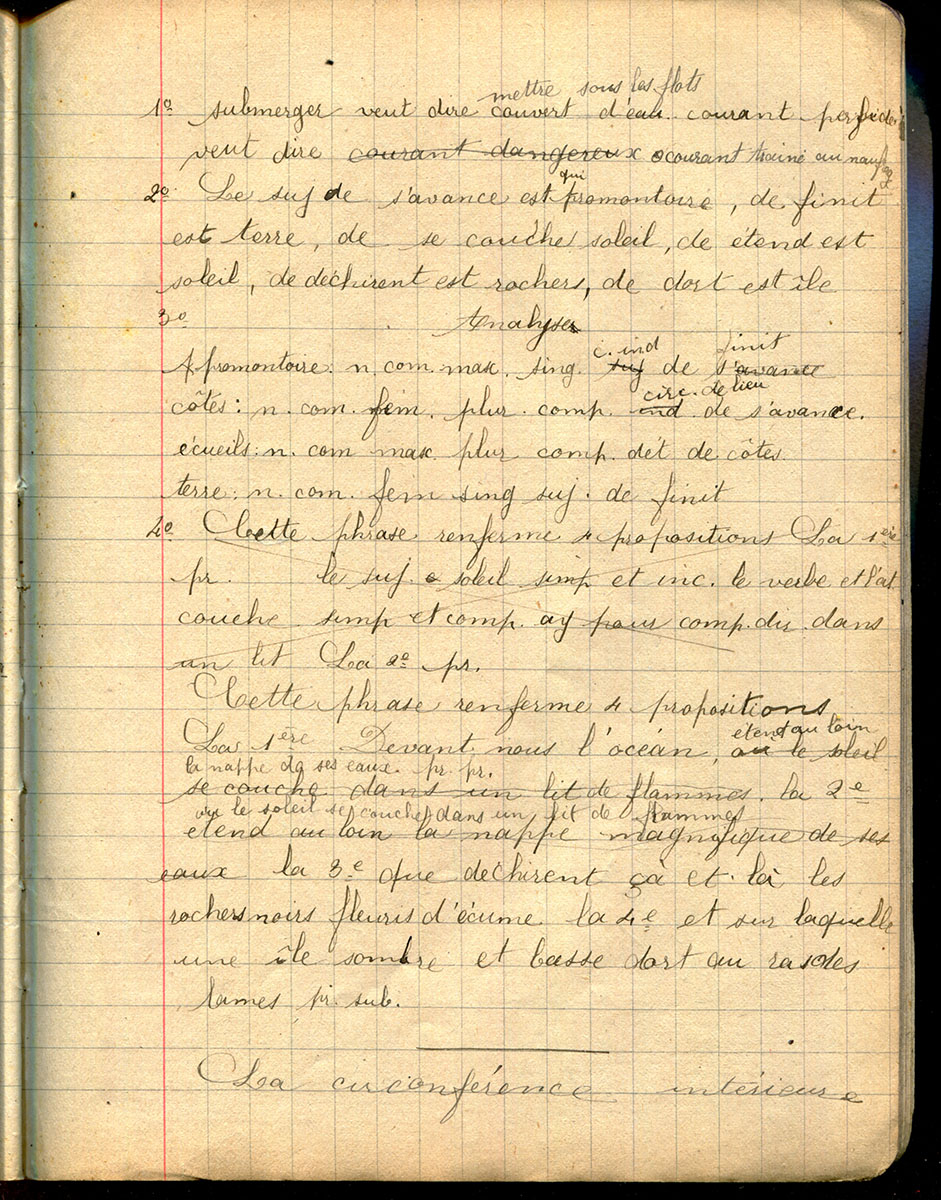 mettre sous les flots
1º submerger veut dire couvert d'eau. courant perfide
veut dire courant dangereux courant traine au nauf
2º Le suj de s'avance est qui promontoire, de finit
est terre, de se couche soleil, de étend est
soleil, de déchirent est rochers, de dort est île
3º Analyse
c. ind finit
promontoire: n. com. mas. sing. suj de s'avance
circ. de lieu
côtes: n. com. fem. plur. comp. ind de s'avance.
écueils: n. com mas. plur comp. dét de côtes.
terre: n. com. fem sing suj. de finit
4º Cette phrase renferme 4 propositions La 1ère
pr. le suj. soleil simp et inc. le verbe et l'at
couche simp et comp. ay pour comp. dir. dans
un lit La 2e pr.
Cette phrase renferme 4 propositions
étend au loin
La 1ère Devant nous l'océan, où le soleil
la nappe de ses eaux. pr. pr.
se couche dans un lit de flammes. la 2e
où le soleil se couche dans un lit de flammes
étend au loin la nappe magnifique de ses
eaux la 3e que déchirent ça et là les
rochers noirs fleuris d'écume la 4e et sur laquelle
une île sombre et basse dort au ras des
lames pr. sub.
La circonférence intérieure